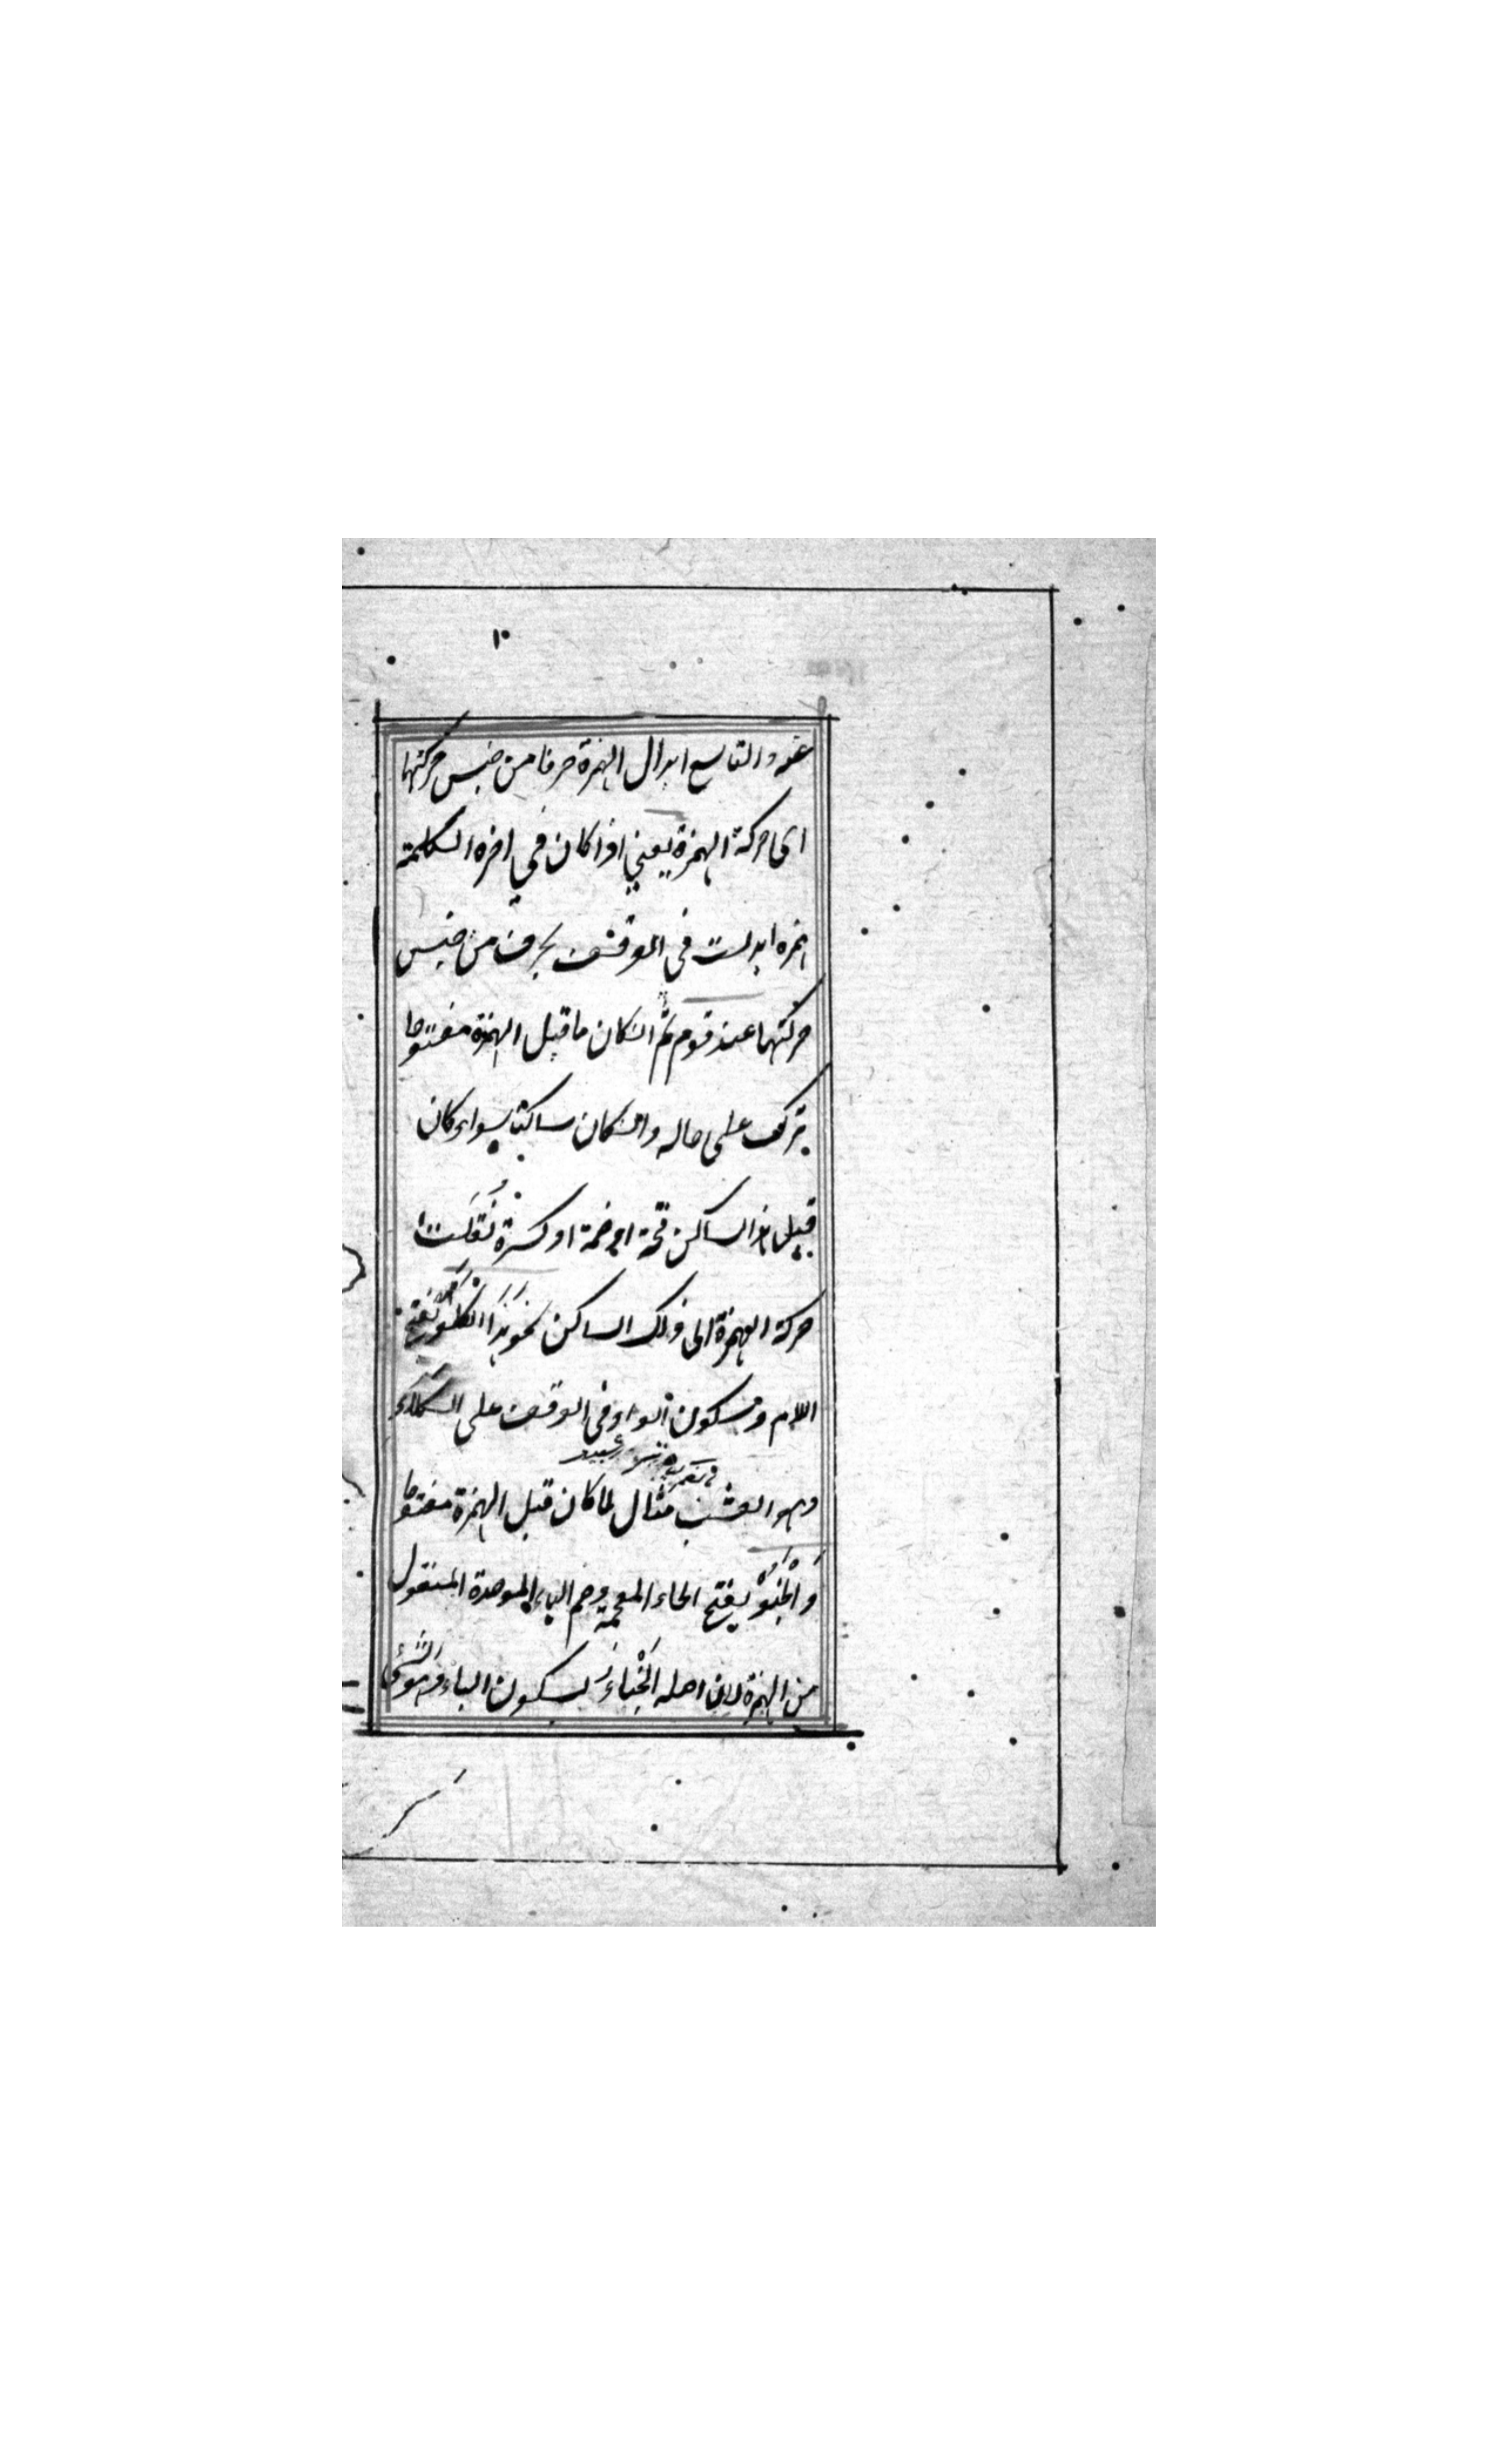 ١٠
عنه والتاسع ابدال الهمزة حرفا من جنس حركتها
اى حركة الهمزة يعني اذا كان في اخره الكلمة
همزه ابدلت في الوقف بحرف من جنس
حركتها عند قوم ثم انكان ما قبل الهمزة مفتوحا
يترك على حاله وانكان ساكنا سواء كان
قبل هذا الساكن فتحة او ضمة او كسرة نُقلت
حركة الهمزة الى ذلك الساكن نحو هذا الكلو بفتح
اللام وسكون الواو في الوقف على الكلاء
وهو العشب مثال لما كان قبل الهمزة مفتوحا
وَالْخَبُوْ بفتح الخاء المعجمة وضم الباء الموحدة المنقول
من الهمزة لان اصله الْخَبْاءُ بسكون الباء وهو الشئ